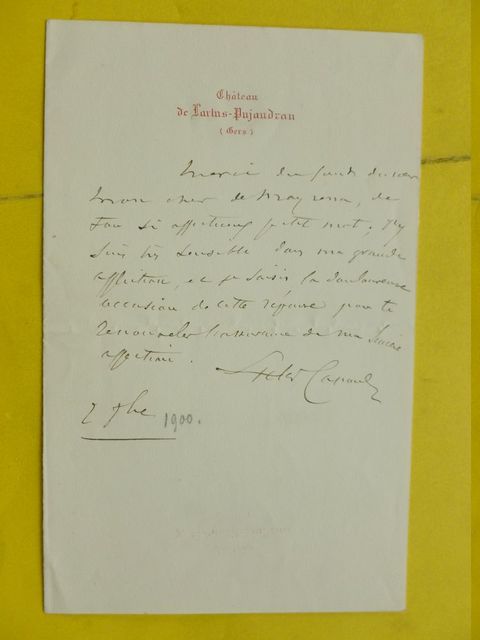 Château
de Lartus-Pujaudran
(Gers)
Merci du fond du cœur
mon cher de Mayrena, de
ton si affectueux petit mot. J'y
suis très sensible dans ma grande
affliction, et je saisis la douloureuse
occasion de cette réponse pour te
renouveler l'assurance de ma sincère
affection.
Victor Capoul
2 9bre 1900.